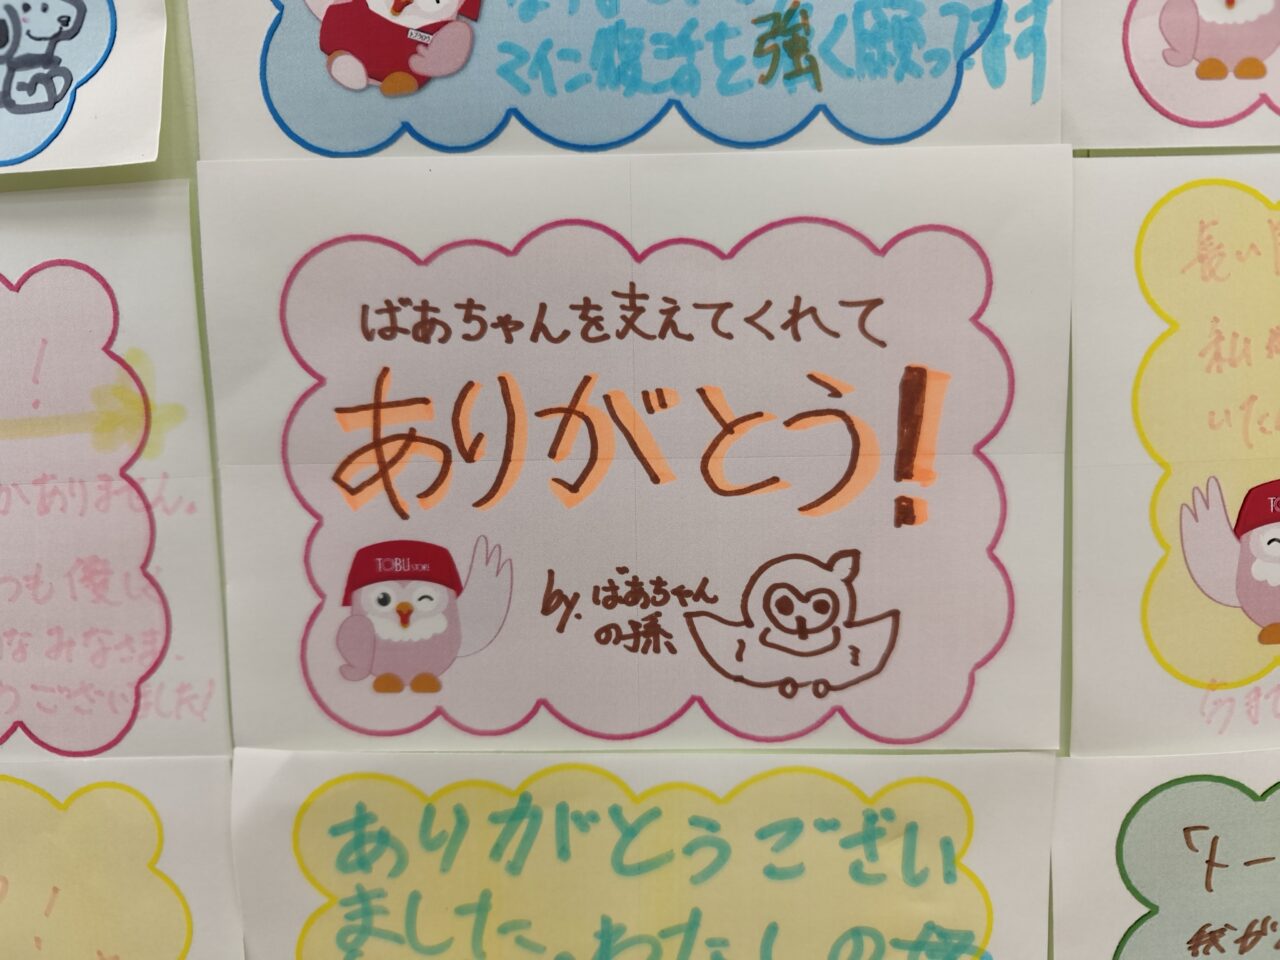 マイン復活を強く願ってます
ばあちゃんを支えてくれて
ありがとう!
TOBU STORE
by. ばあちゃん
の孫
!
かありません。
つも優し
なみなさま、
うございました!
長い
私
いた
TO
今ま
ありがとうござい
ました。わたしの
!
「トー